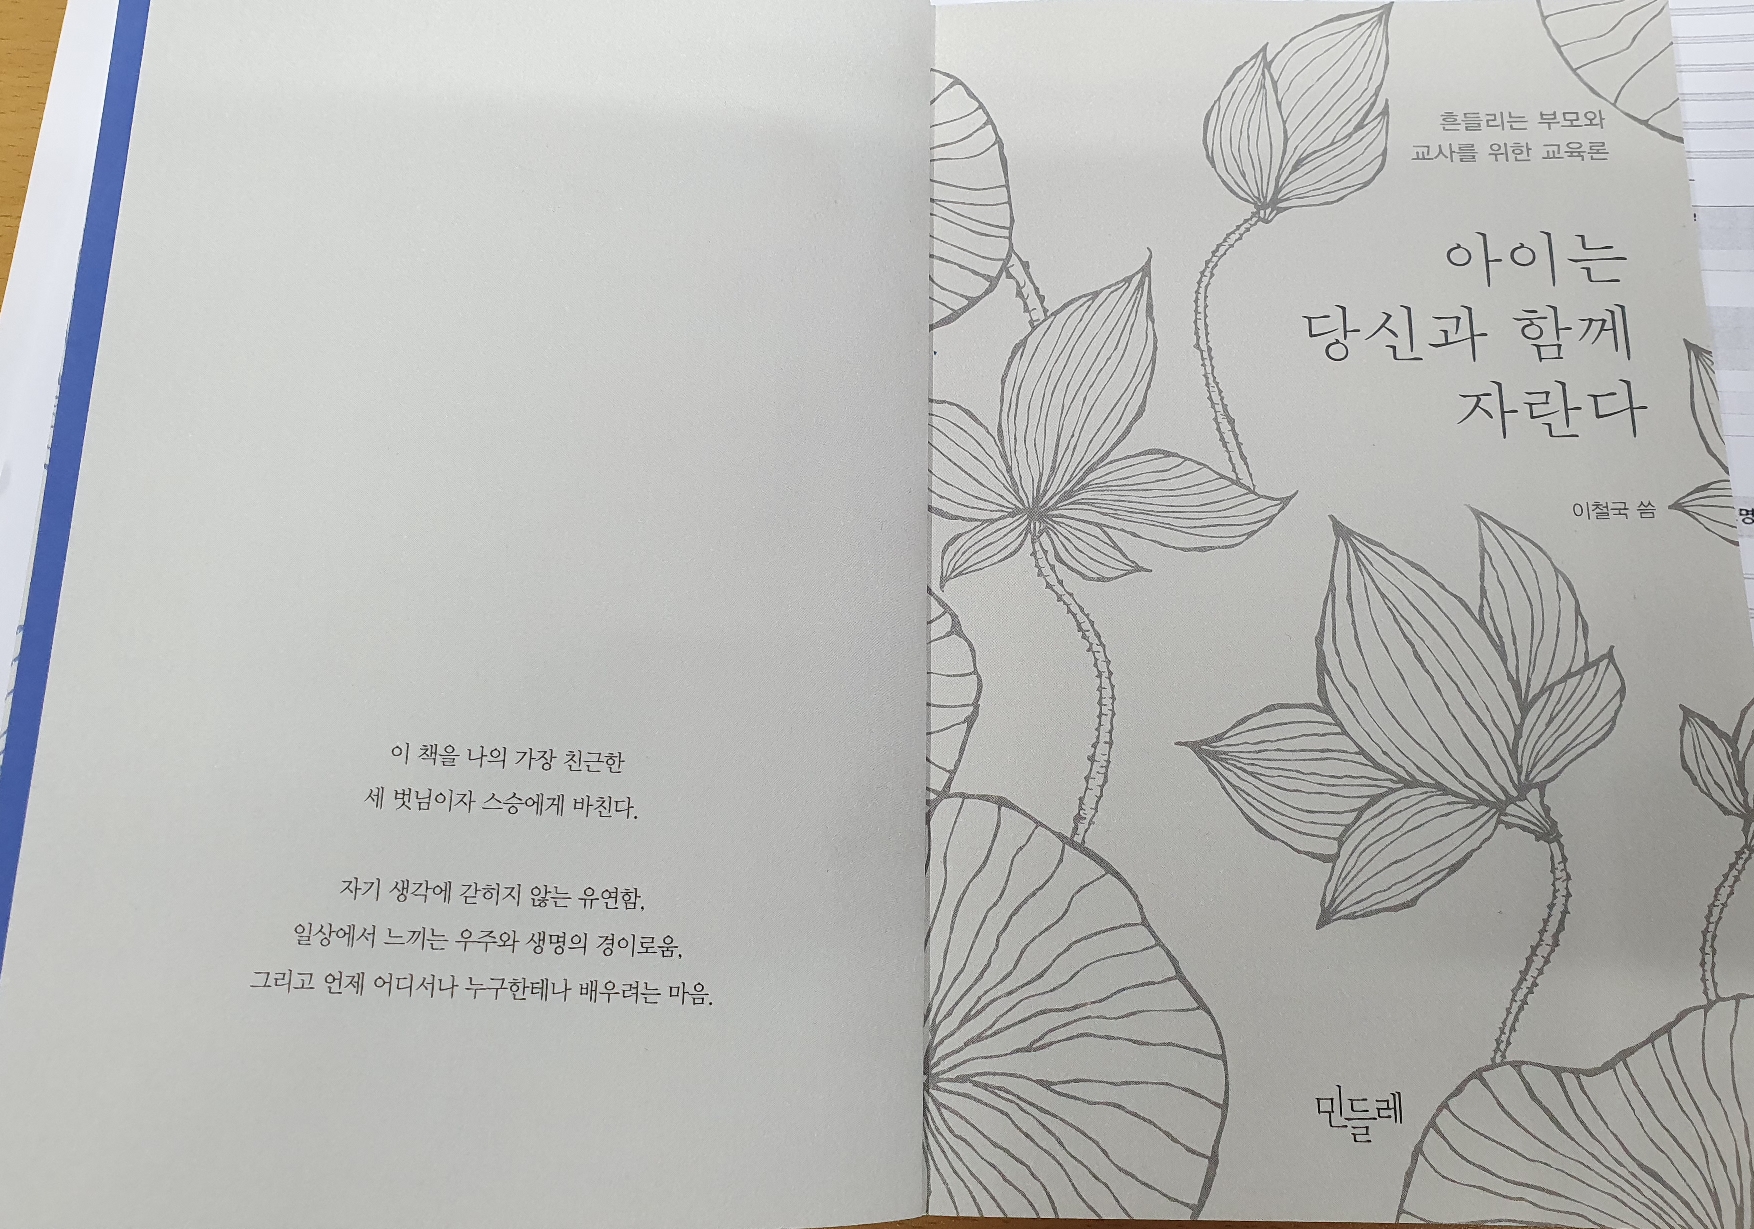 이 책을 나의 가장 친근한
세 벗님이자 스승에게 바친다.
자기 생각에 갇히지 않는 유연함,
일상에서 느끼는 우주와 생명의 경이로움,
그리고 언제 어디서나 누구한테나 배우려는 마음.
흔들리는 부모와
교사를 위한 교육론
아이는
당신과 함께
자란다
이철국 씀
민들레